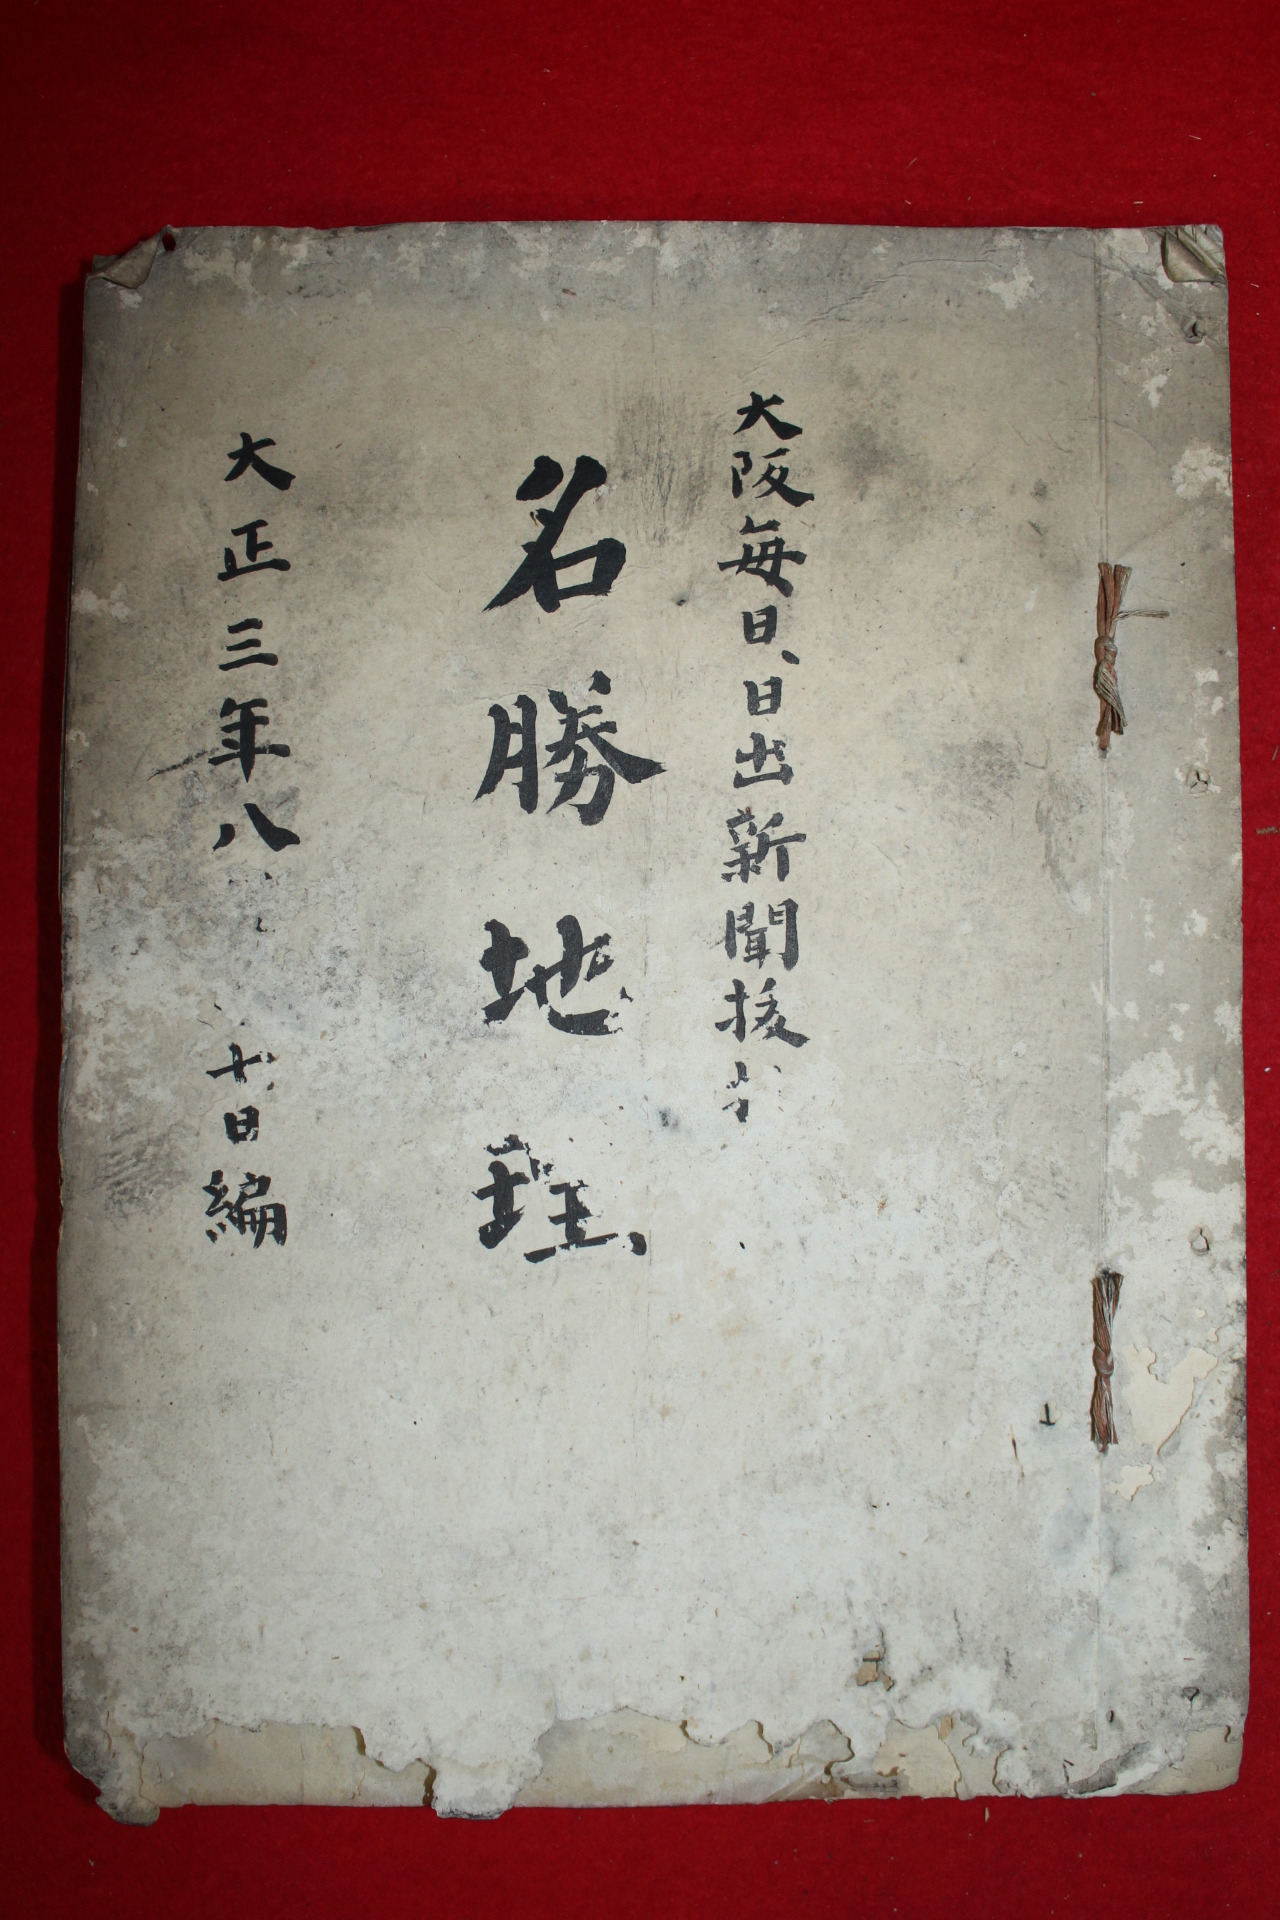 大阪毎日、日出新聞抜
名勝地理、
大正三年八
十日編